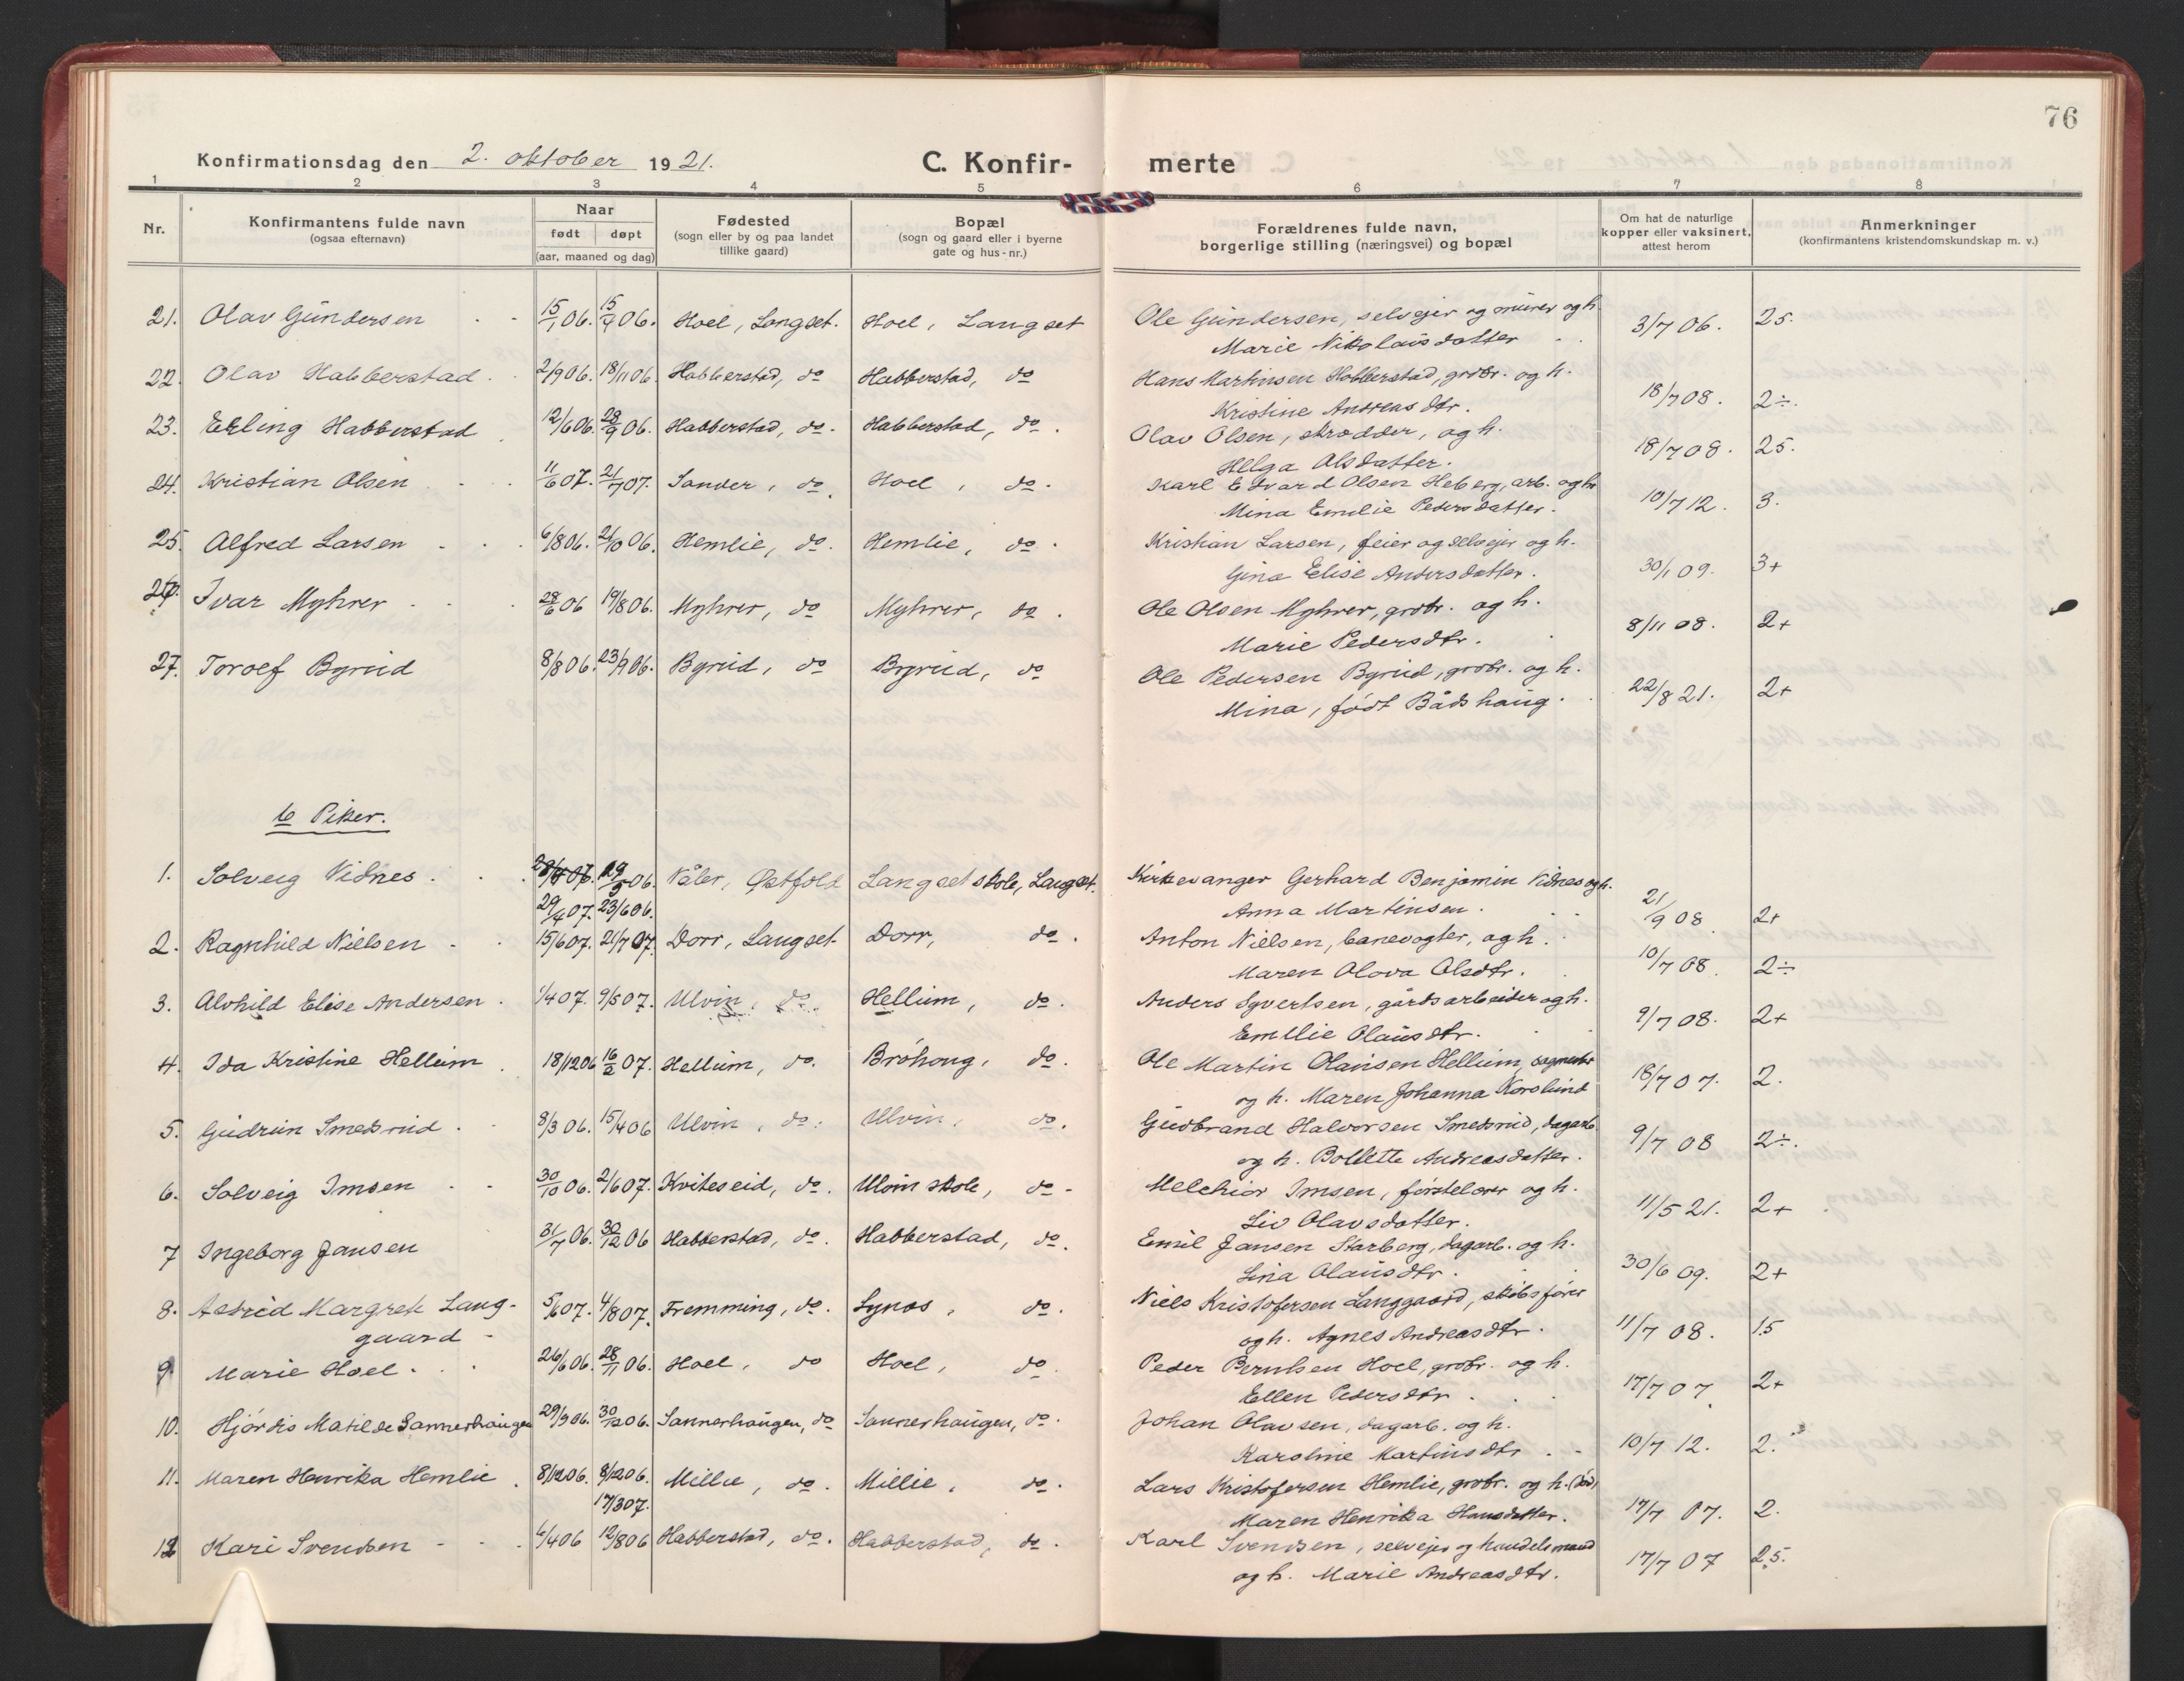 76
Konfirmationsdag den 2. oktober 1921. C. Konfir- merte
1 2 3 4 5 6 7 8
Nr. Konfirmantens fulde navn (ogsaa efternavn) Naar født døpt (aar, maaned og dag) Fødested (sogn eller by og paa landet tillike gaard) Bopæl (sogn og gaard eller i byerne gate og hus-nr.) Forældrenes fulde navn, borgerlige stilling (næringsvei) og bopæl Om hat de naturlige kopper eller vaksinert, attest herom Anmerkninger (konfirmantens kristendomskundskap m. v.)
21. Olav Gundersen 15/1 06. 15/4 06. Hoel, Langset. Hoel, Langset Ole Gundersen, selvejer og murer og h. 3/7 06. 25.
Marie Nikolausdatter
22. Olav Habberstad 2/9 06. 18/11 06. Habberstad, do Habberstad, do Hans Martinsen Habberstad, grdbr. og h.
Kristine Andreasdtr. 18/7 08. 2÷.
23. Erling Habberstad 12/6 06. 28/9 06. Habberstad, do. Habberstad, do. Olav Olsen, skrædder, og h.
Helga Olsdatter. 18/7 08. 25.
24. Kristian Olsen 11/6 07. 21/7 07. Sander, do. Hoel, do. Karl Edvard Olsen Heberg, arb. og h
Mina Emilie Pedersdatter. 10/7 12. 3.
25. Alfred Larsen 6/8 06. 21/10 06. Hemlie, do. Hemlie, do. Kristian Larsen, feier og selvejer og h.
Gina Elise Andersdatter. 30/1 09. 3+
26. Ivar Myhrer 28/6 06 19/8 06. Myhrer, do Myhrer, do. Ole Olsen Myhrer, grdbr. og h.
Marie Pedersdtr. 8/11 08. 2+
27. Torolf Byrud 8/8 06. 23/9 06. Byrud, do Byrud, do Ole Pedersen Byrud, grdbr. og h.
Mina, født Bådshaug. 22/8 21. 2+
b Piker.
1. Solveig Vidnes 29/5 06. Våler, Østfold Langset skole, Langset. Kirkesanger Gerhard Benjamin Vidnes og h.
29/4 07. 23/6 06. Anna Martinsen. 21/9 08. 2+
2. Ragnhild Nielsen 15/6 07. 21/7 07. Dorr, Langset Dorr, do. Anton Nielsen, banevogter, og h.
Maren Olava Olsdtr. 10/7 08. 2÷
3. Alvhild Elise Andersen 1/4 07. 9/5 07. Ulvin, do. Hellum, do. Anders Syvertsen, gårdsarbeider og h.
Emilie Olausdtr. 9/7 08. 2+
4. Ida Kristine Hellum 18/12 06 16/2 07. Hellum, do. Bröhoug, do. Ole Martin Olausen Hellum,
og h. Maren Johanna Korslund 18/7 07. 2.
5. Gudrun Smedsrud 8/3 06. 15/4 06 Ulvin, do. Ulvin, do. Gudbrand Halvorsen Smedsrud, dagarb.
og h. Bollette Andreasdatter. 9/7 08 2÷.
6. Solveig Imsen 30/10 06. 2/6 07. Kviteseid, do. Ulvin skole, do Melchior Imsen, førstelærer og h.
Liv Olavsdatter. 11/5 21. 2+
7 Ingeborg Jansen 31/7 06. 30/12 06 Habberstad, do. Habberstad, do. Emil Jansen Starberg, dagarb. og h.
Lina Olausdtr. 30/6 09. 2+
8. Astrid Margrete Lang- 5/6 07. 4/8 07. Fremming, do. Synos, do. Niels Kristofersen Langgaard, skibsfører
gaard og h. Agnes Andreasdtr. 11/7 08. 15
9 Marie Hoel. 26/6 06. 28/11 06. Hoel, do Hoel, do. Peder Berntsen Hoel, grdbr. og h.
Ellen Pedersdtr. 17/7 07 2+
10. Hjördis Matilde Sannerhaugen 29/9 06. 30/12 06. Sannerhaugen, do Sannerhaugen, do. Johan Olavsen, dagarb. og h.
Karoline Martinsdtr 10/7 12. 2.
11. Maren Henrika Hemlie 8/12 06. 8/12 06. Millie, do. Millie, do. Lars Kristofersen Hemlie, grdbr. og h. (död)
17/3 07. Maren Henrika Hansdatter. 17/7 07. 2.
12 Kari Svendsen 6/4 06 12/8 06 Habberstad, do. Habberstad, do. Karl Svendsen, selvejer og handelsmand
og h. Marie Andreasdtr. 17/7 07 25.